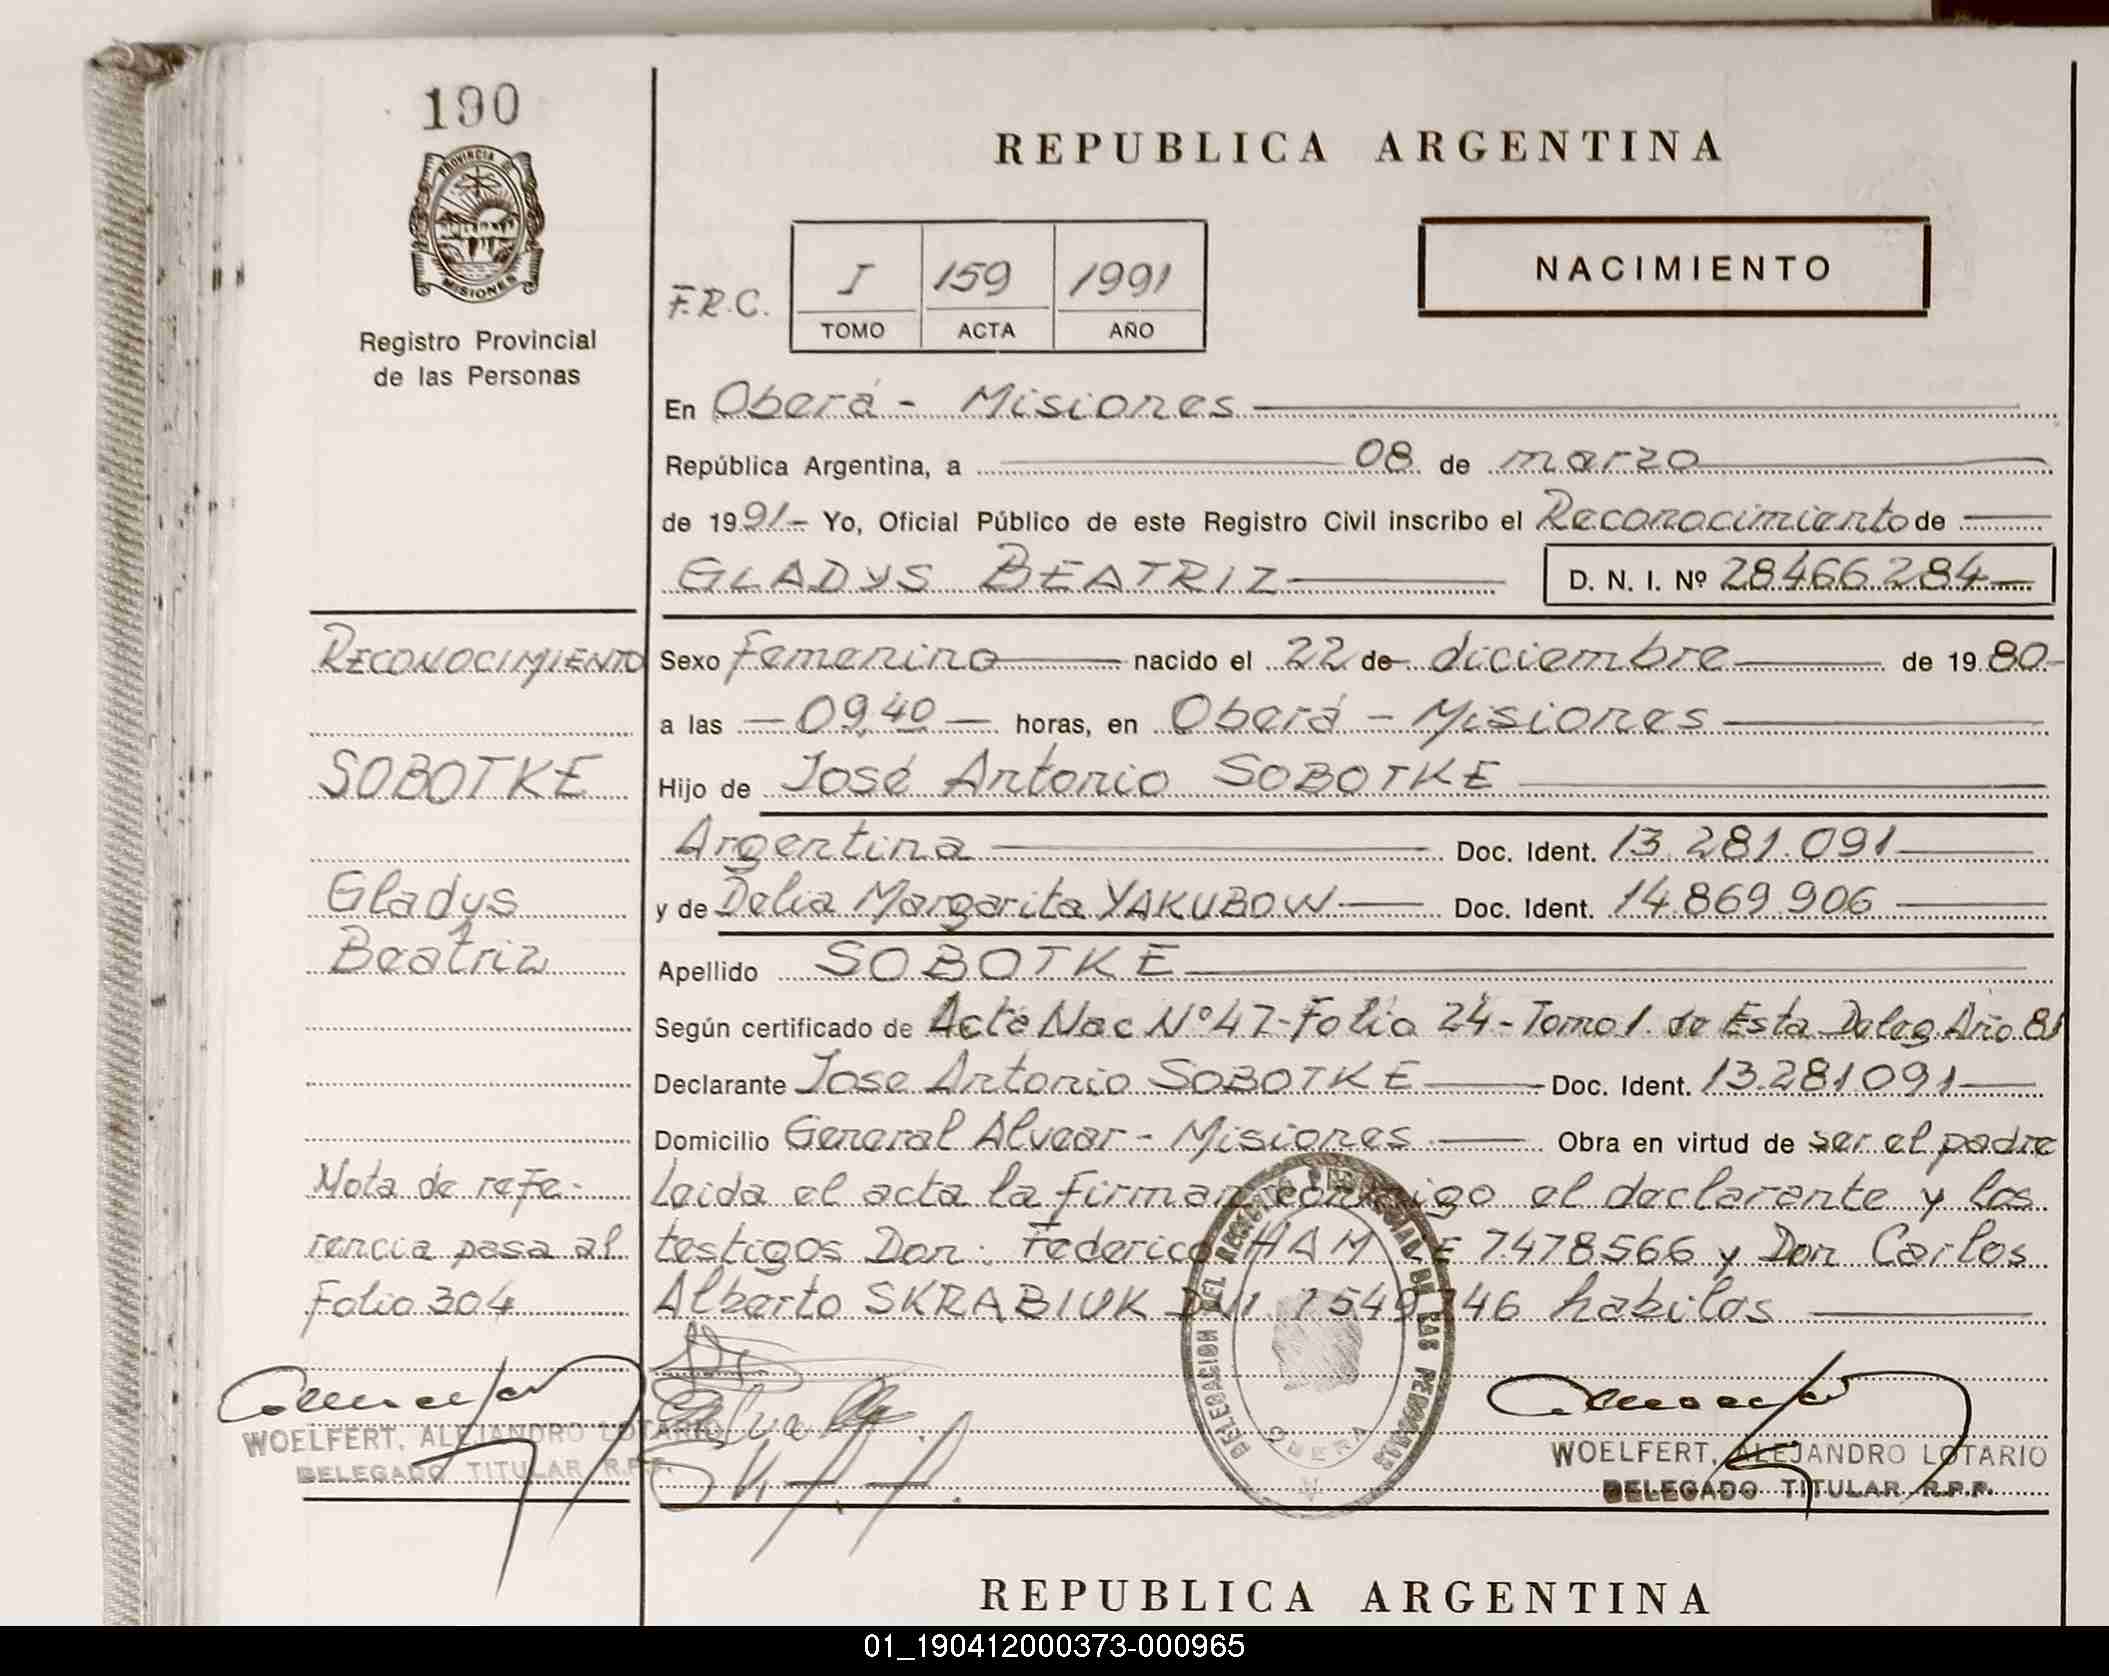 190
PROVINCIA DE
MISIONES
Registro Provincial
de las Personas
REPUBLICA ARGENTINA
NACIMIENTO
F.R.C.
I 159 1991
TOMO ACTA AÑO
En Oberá - Misiones
República Argentina, a 08 de marzo
de 1991- Yo, Oficial Público de este Registro Civil inscribo el Reconocimiento de
GLADYS BEATRIZ D. N. I. Nº 28466284
RECONOCIMIENTO
Sexo Femenino nacido el 22 de diciembre de 1980-
a las 09,40 horas, en Oberá - Misiones
SOBOTKE
Hijo de José Antonio SOBOTKE
Argentina Doc. Ident. 13.281.091
Gladys
y de Delia Margarita YAKUBOW Doc. Ident. 14.869.906
Beatriz
Apellido SOBOTKE
Según certificado de Acta Nac Nº 47-Folio 24-Tomo 1. de Esta Deleg. Año 81
Declarante Jose Antonio SOBOTKE Doc. Ident. 13.281.091
Domicilio General Alvear - Misiones Obra en virtud de ser el padre
Nota de refe-
rencia pasa al
Folio 304
Leida el acta la firman conmigo el declarante y los
testigos Don. Federico HAM 7.478.566 y Don Carlos
Alberto SKRABIUK habiles
WOELFERT, ALEJANDRO LOTARIO
DELEGADO TITULAR R.P.P.
DELEGACION DEL REGISTRO PROVINCIAL DE LAS PERSONAS
OBERA
WOELFERT, ALEJANDRO LOTARIO
DELEGADO TITULAR R.P.P.
REPUBLICA ARGENTINA
01_190412000373-000965